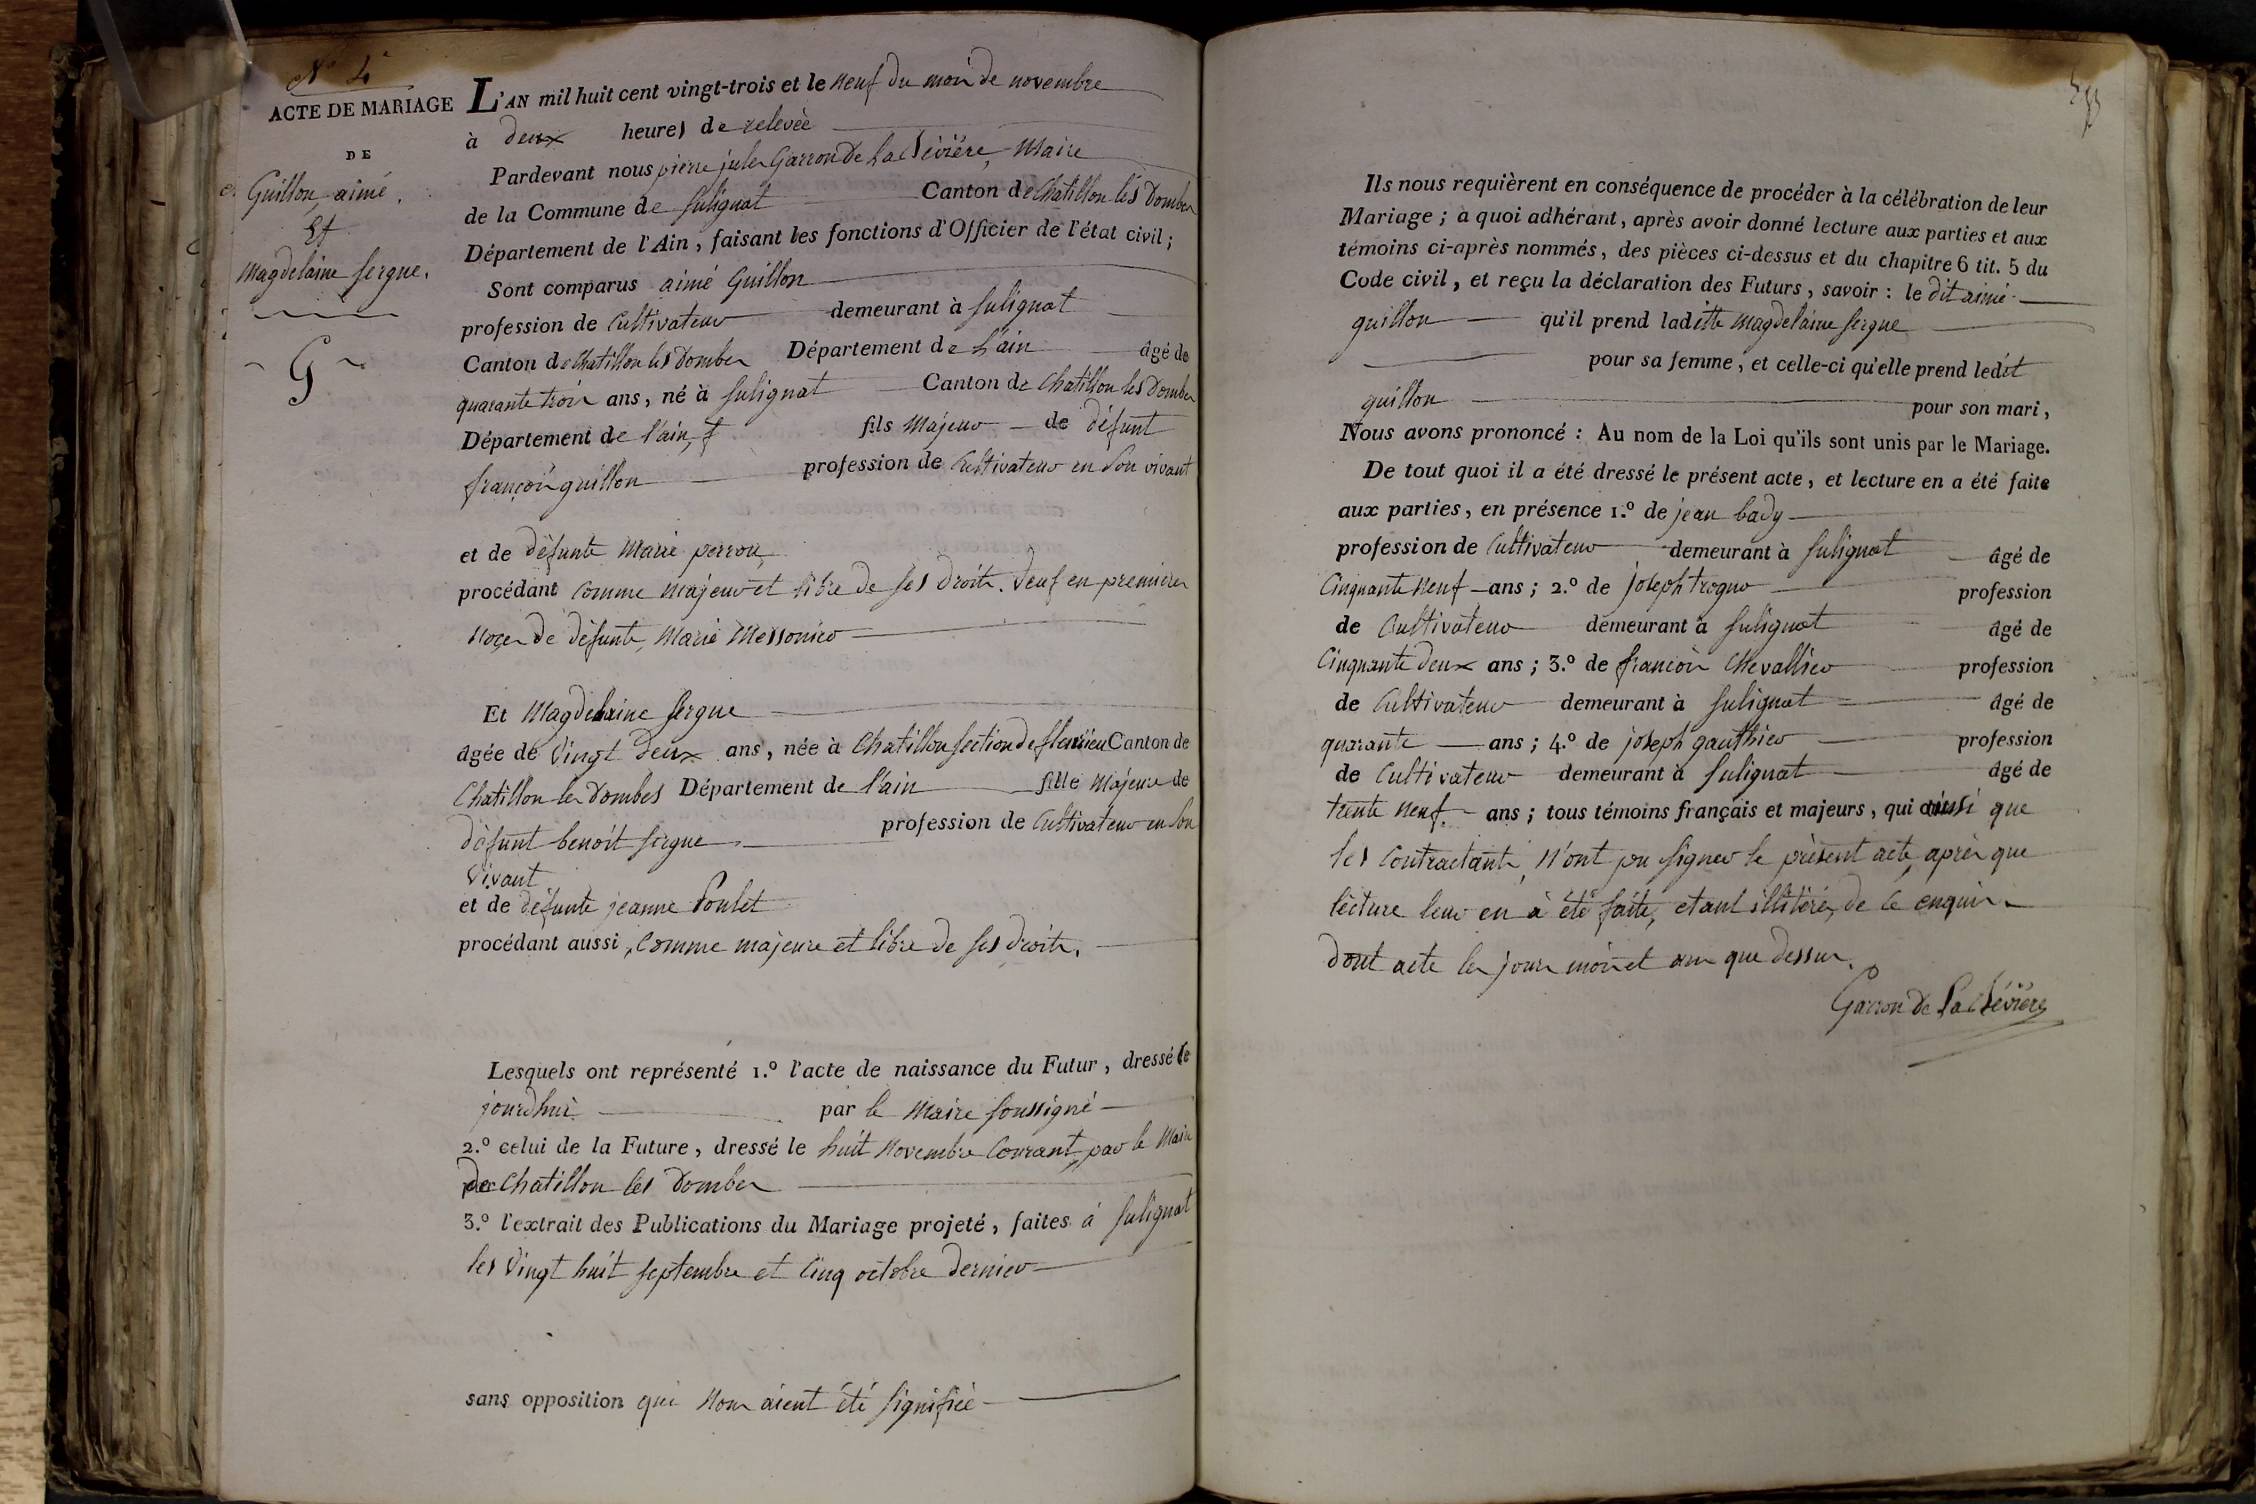 N° 4
ACTE DE MARIAGE
DE
Guillon aimé,
Et
Magdelaine Sergue.
G
L'AN mil huit cent vingt-trois et le neuf du mois de novembre
à deux heures de relevée
Pardevant nous pierre jules Garron De La Sévière, Maire
de la Commune de Sulignat Canton de Chatillon lès Dombes
Département de l'Ain, faisant les fonctions d'Officier de l'état civil;
Sont comparus aimé Guillon
profession de Cultivateur demeurant à Sulignat
Canton de Chatillon lès Dombes Département de L'ain âgé de
quarante trois ans, né à Sulignat Canton de Chatillon lès Dombes
Département de l'ain, fils Majeur de défunt
françois guillon profession de Cultivateur en Son vivant
et de défunte Marie perron,
procédant comme Majeur et libre de ses droits. Veuf en premieres
Noces de défunte, Marie Messonier
Et Magdelaine Sergue
âgée de Vingt deux ans, née à Chatillon Section de fleurieu Canton de
Chatillon les Dombes Département de l'ain fille Majeure de
défunt benoit Sergue profession de Cultivateur en Son
Vivant
et de défunte jeanne Poulet
procédant aussi, Comme majeure et libre de ses droits.
Lesquels ont représenté 1.º l'acte de naissance du Futur, dressé le
jourdhui par le Maire soussigné
2.º celui de la Future, dressé le huit Novembre Courant, par le Maire
de Chatillon lès Dombes
3.º l'extrait des Publications du Mariage projeté, faites à Sulignat
les Vingt huit Septembre et Cinq octobre dernier
sans opposition qui Nous aient été signifiée
Ils nous requièrent en conséquence de procéder à la célébration de leur
Mariage; à quoi adhérant, après avoir donné lecture aux parties et aux
témoins ci-après nommés, des pièces ci-dessus et du chapitre 6 tit. 5 du
Code civil, et reçu la déclaration des Futurs, savoir: le dit aimé
guillon qu'il prend ladite Magdelaine Sergue
pour sa femme, et celle-ci qu'elle prend ledit
guillon pour son mari,
Nous avons prononcé: Au nom de la Loi qu'ils sont unis par le Mariage.
De tout quoi il a été dressé le présent acte, et lecture en a été faite
aux parties, en présence 1.º de jean bady
profession de Cultivateur demeurant à Sulignat âgé de
Cinquante Neuf ans; 2.º de joseph trogno profession
de Cultivateur demeurant à Sulignat âgé de
Cinquante deux ans; 3.º de francois Chevallier profession
de Cultivateur demeurant à Sulignat âgé de
quarante ans; 4.º de joseph gauthier profession
de Cultivateur demeurant à Sulignat âgé de
trente Neuf ans; tous témoins français et majeurs, qui ainsi que
les Contractants, N'ont pu signer le présent acte, après que
lecture leur en à été faite, etant illitérés, de ce enquis
dont acte les jour mois et an que dessus.
Garron De La Sévière